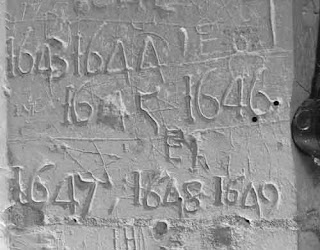 1643 1644
1645 1646
1647 1648 1649